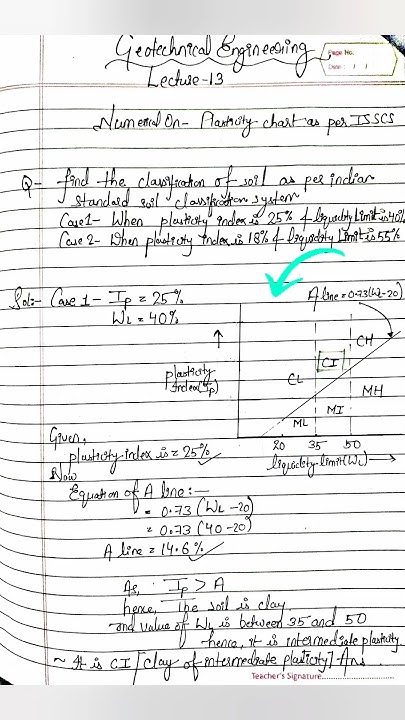 Geotechnical Engineering
Page No.
Date: / /
Lecture-13
Numerical On- Plasticity chart as per ISSCS
Q- find the classification of soil as per indian
standard soil classification system
Case 1- When plasticity index is 25% & liquidity Limit is 40%
Case 2- When plasticity index is 18% & liquidity Limit is 55%
Sol:- Case 1 - Ip = 25%
WL = 40%
A line = 0.73(WL-20)
CH
CI
CL
MH
MI
ML
plasticity
Index(Ip)
20 35 50
liquidity limit(WL)
Given,
plasticity index is = 25%
Now
Equation of A line:-
= 0.73 (WL - 20)
= 0.73 (40 - 20)
A line = 14.6%
As, Ip > A
hence, The soil is clay
and value of WL is between 35 and 50
hence, it is intermediate plasticity
~ It is CI [clay of intermediate plasticity] Ans.
Teacher's Signature